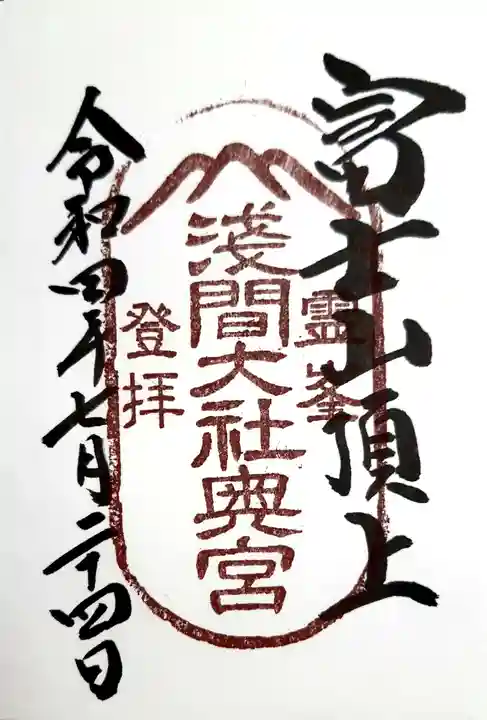 富士山頂上
霊峯
浅間大社奥宮
登拝
令和四年七月二十四日